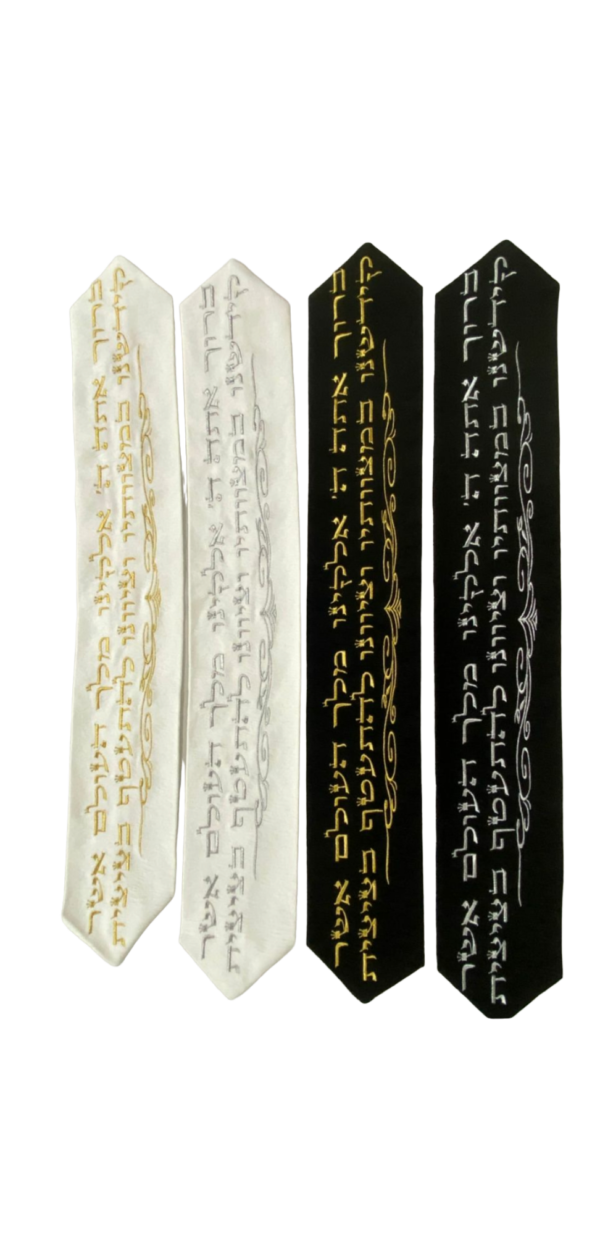 ברוך אתה ה' אלקינו מלך העולם אשר
קידשנו במצוותיו וציוונו להתעטף בציצית
ברוך אתה ה' אלקינו מלך העולם אשר
קידשנו במצוותיו וציוונו להתעטף בציצית
ברוך אתה ה' אלקינו מלך העולם אשר
קידשנו במצוותיו וציוונו להתעטף בציצית
ברוך אתה ה' אלקינו מלך העולם אשר
קידשנו במצוותיו וציוונו להתעטף בציצית